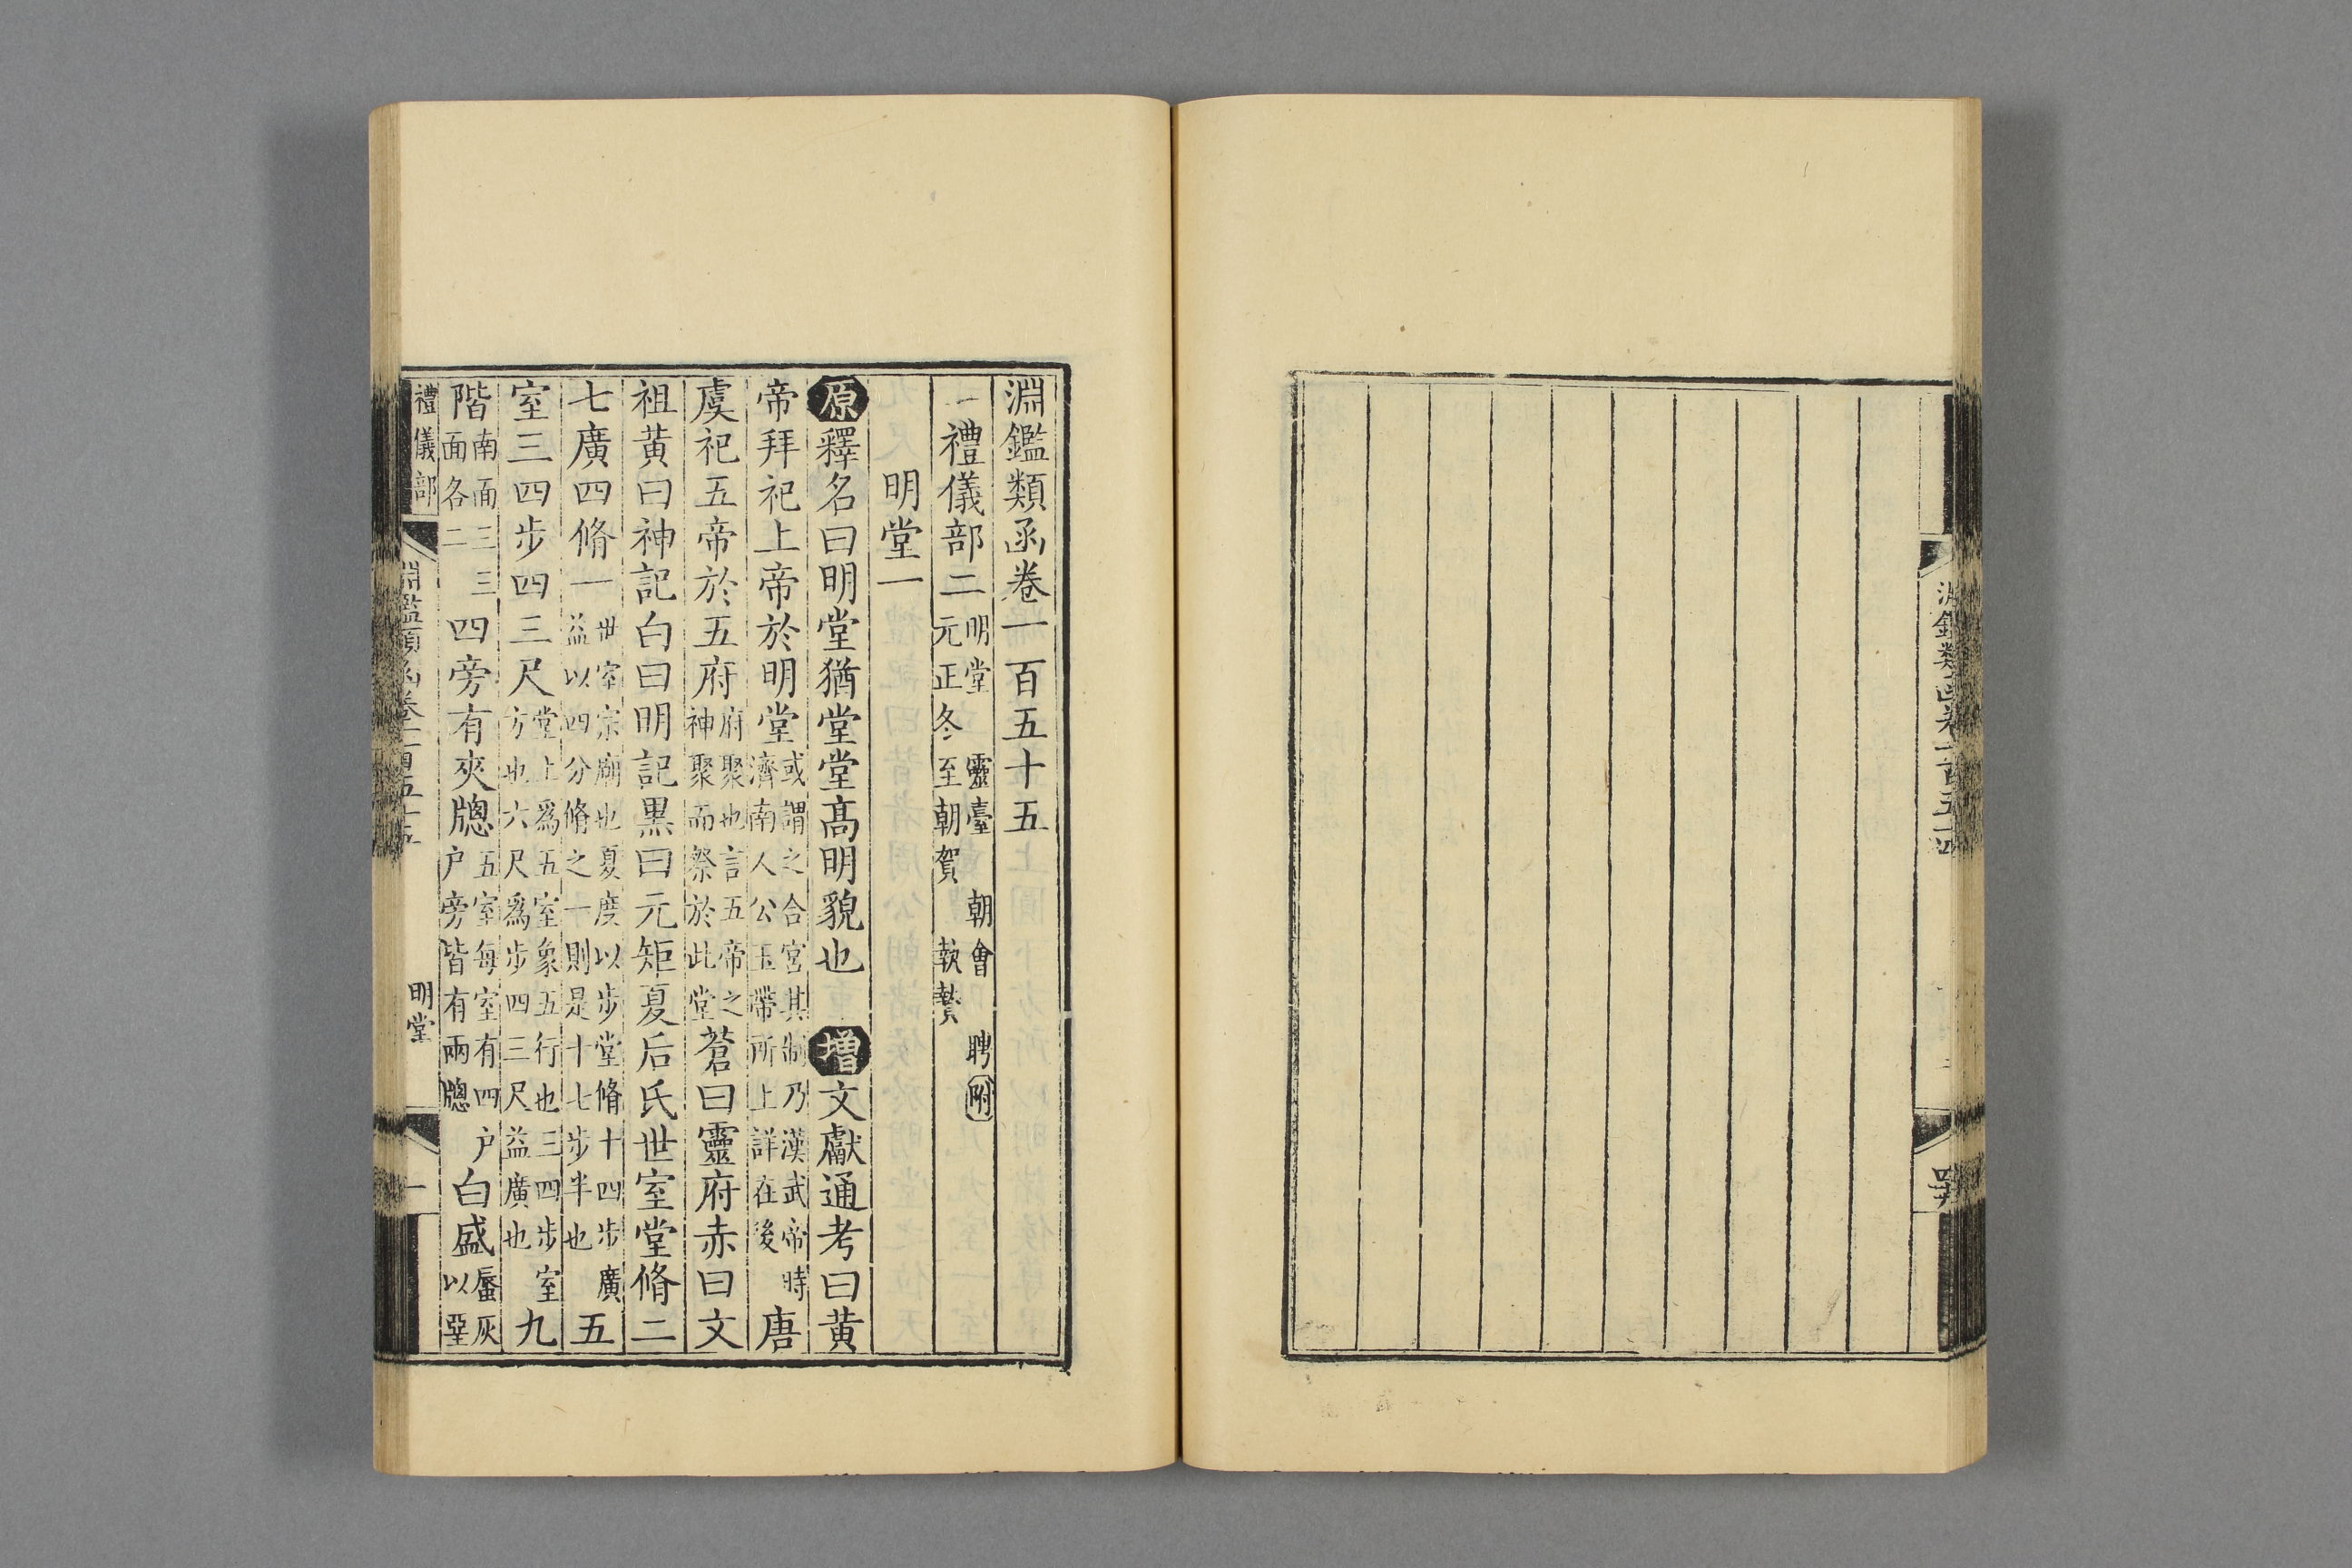 淵鑑類函卷一百五十四
淵鑑類函卷一百五十五
禮儀部二 明堂 靈臺 朝會 聘附 元正冬至朝賀 執贄
明堂一
原釋名曰明堂猶堂堂高明貌也 增文獻通考曰黃
帝拜祀上帝於明堂 或謂之合宮其制乃漢武帝時濟南人公玉帶所上詳在後 唐
虞祀五帝於五府 府聚也言五帝之神聚而祭於此堂 蒼曰靈府赤曰文
祖黃曰神記白曰明記黑曰元矩夏后氏世室堂脩二
七廣四脩一 世室宗廟也夏度以步堂脩十四步廣益以四分脩之一則是十七步半也 五
室三四步四三尺 堂上爲五室象五行也三四步室方也六尺爲步四三尺益廣也 九
階 南面三三面各二 四旁有夾牕 五室每室有四户户旁皆有兩牕 白盛 蜃灰以堊
禮儀部 淵鑑類函卷一百五十五 明堂 一